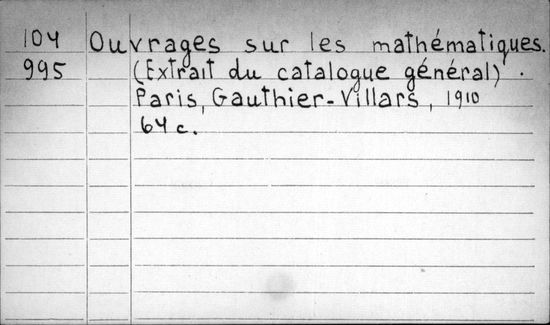 104 Ouvrages sur les mathématiques.
995 (Extrait du catalogue général).
Paris, Gauthier-Villars, 1910
64 c.